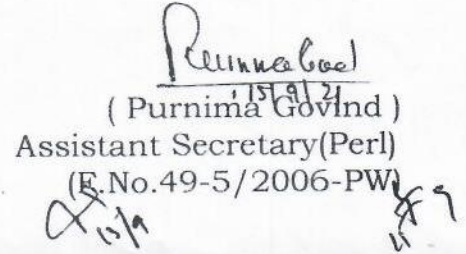 15/9/21
( Purnima Govind )
Assistant Secretary(Perl)
(F.No.49-5/2006-PW)
15/9